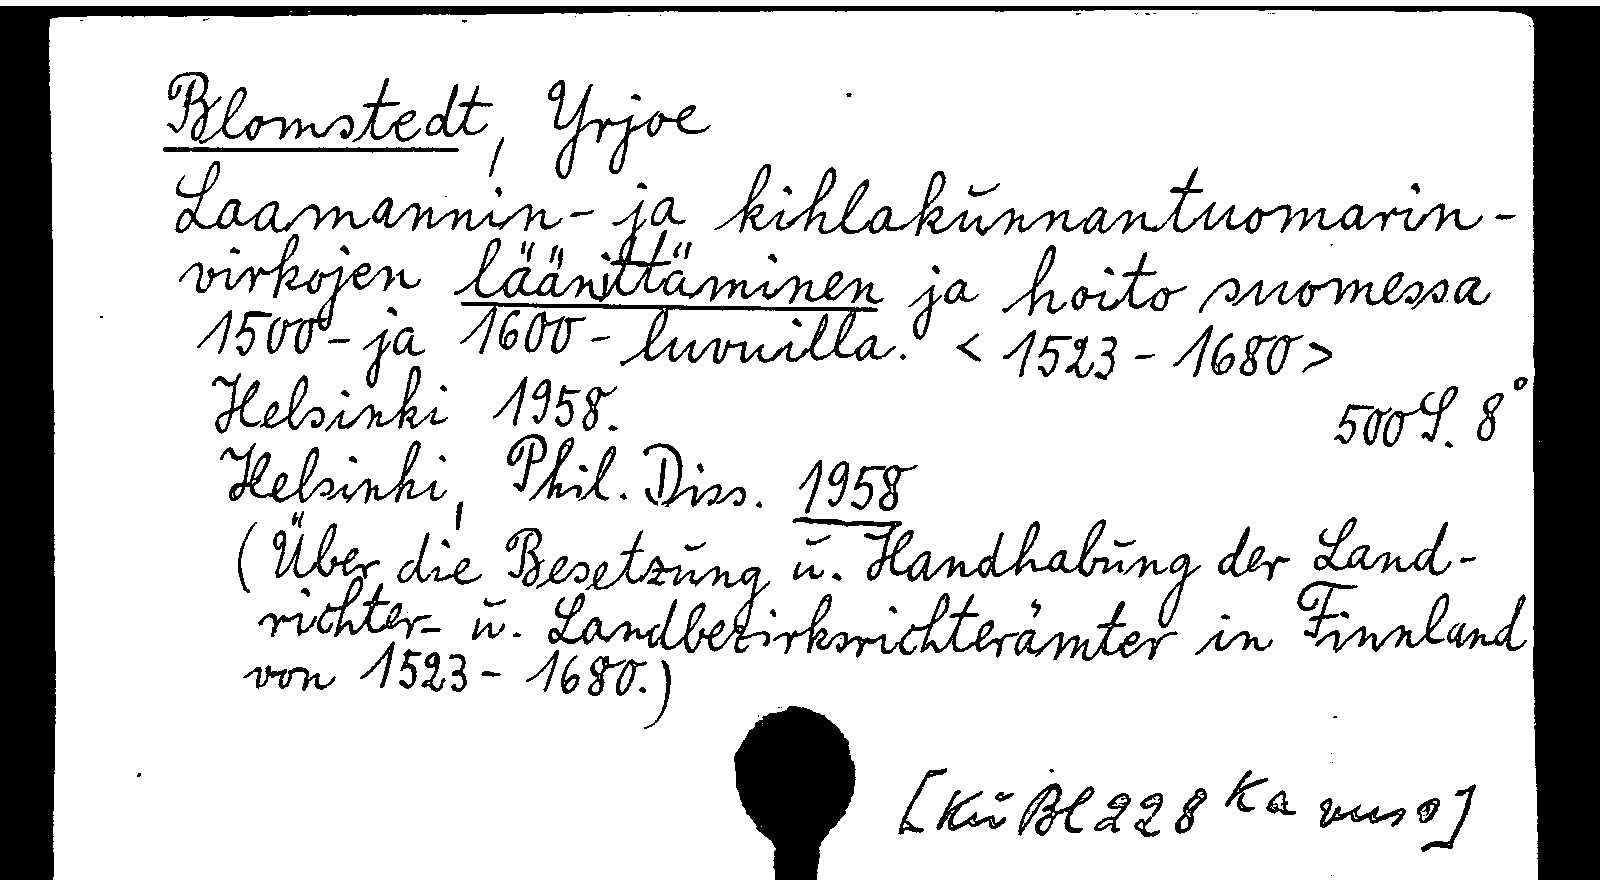 Blomstedt, Yrjoe
Laamannin- ja kihlakunnantuomarin-
virkojen läänittäminen ja hoito suomessa
1500- ja 1600- luvuilla. < 1523 - 1680>
Helsinki 1958. 500 S. 8°
Helsinki, Phil. Diss. 1958
(Über die Besetzung u. Handhabung der Land-
richter- u. Landbezirksrichterämter in Finnland
von 1523 - 1680.)
[Ku Bl 228 Ka